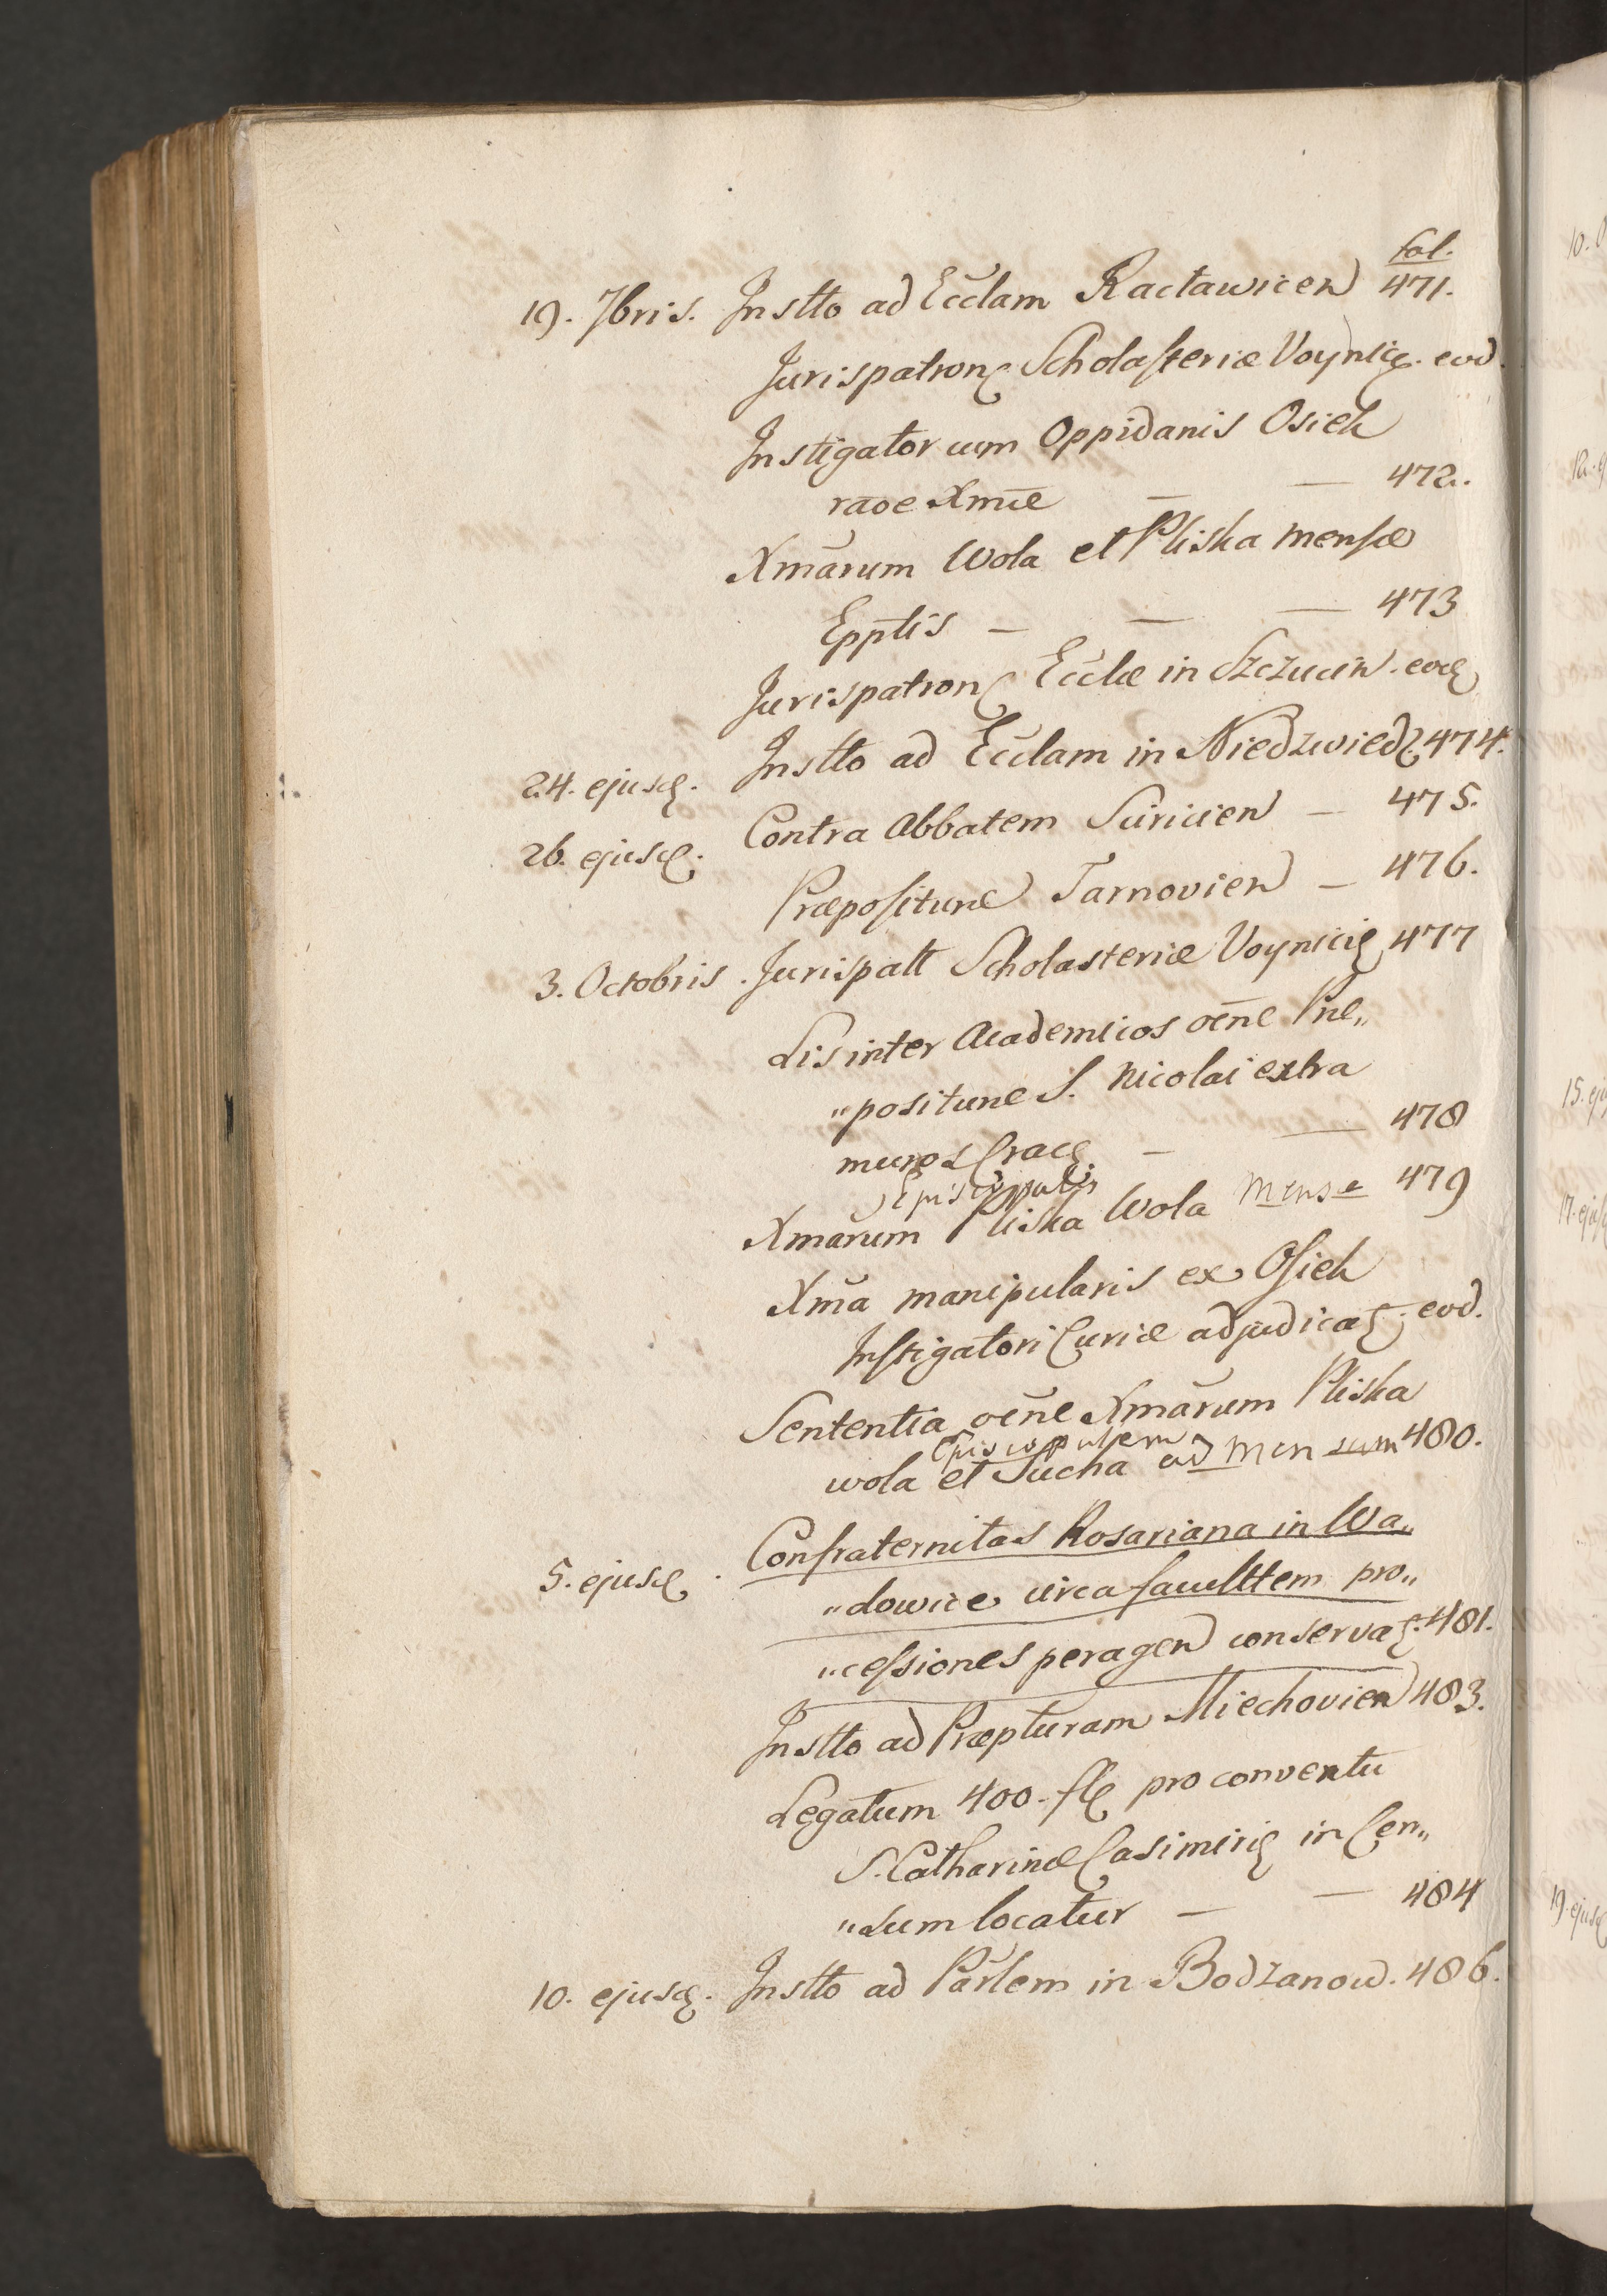 fol.
19. 7bris. Instto ad Ecclam Racławicen 471.
Jurispatron Scholasteriæ Voynicɇ. eod.
Instigator cum Oppidanis Osiek
raōe Xmæ — — 472.
Xmārum Wola et Pliska mensæ
Epptis — — — 473
Jurispatron Ecclæ in Szczucin. eod
24. ejusd. Instto ad Ecclam in Niedzwiedz 474.
26. ejusd. Contra Abbatem Siricien — 475.
Præposituræ Tarnovien — 476.
3. Octobris. Jurispatt Scholasteriæ Voynicɇ 477
Lis inter Academicos oc̄ne Præ„
„posituræ S. Nicolai extra
muros Crac — — 478
Episcopalis
Xmārum Pliska Wola mensæ 479
Xmā manipularis ex Osiek
Instigatori Curiæ adjudicat. eod.
Sententia oc̄ne Xmārum Pliska
Episcopalem
wola et Sucha ad mensam 480.
5. ejusd. Confraternitas Rosariana in Wa„
„dowice circa facultttem pro„
„cessiones peragen conservat. 481.
Instto ad Præpturam Miechovien 483.
Legatum 400. fl pro conventu
S. Catharinæ Casimiriɇ in Cen„
„sum locatur — — 484
10. ejusd. Instto ad Parlem in Bodzanow. 486.